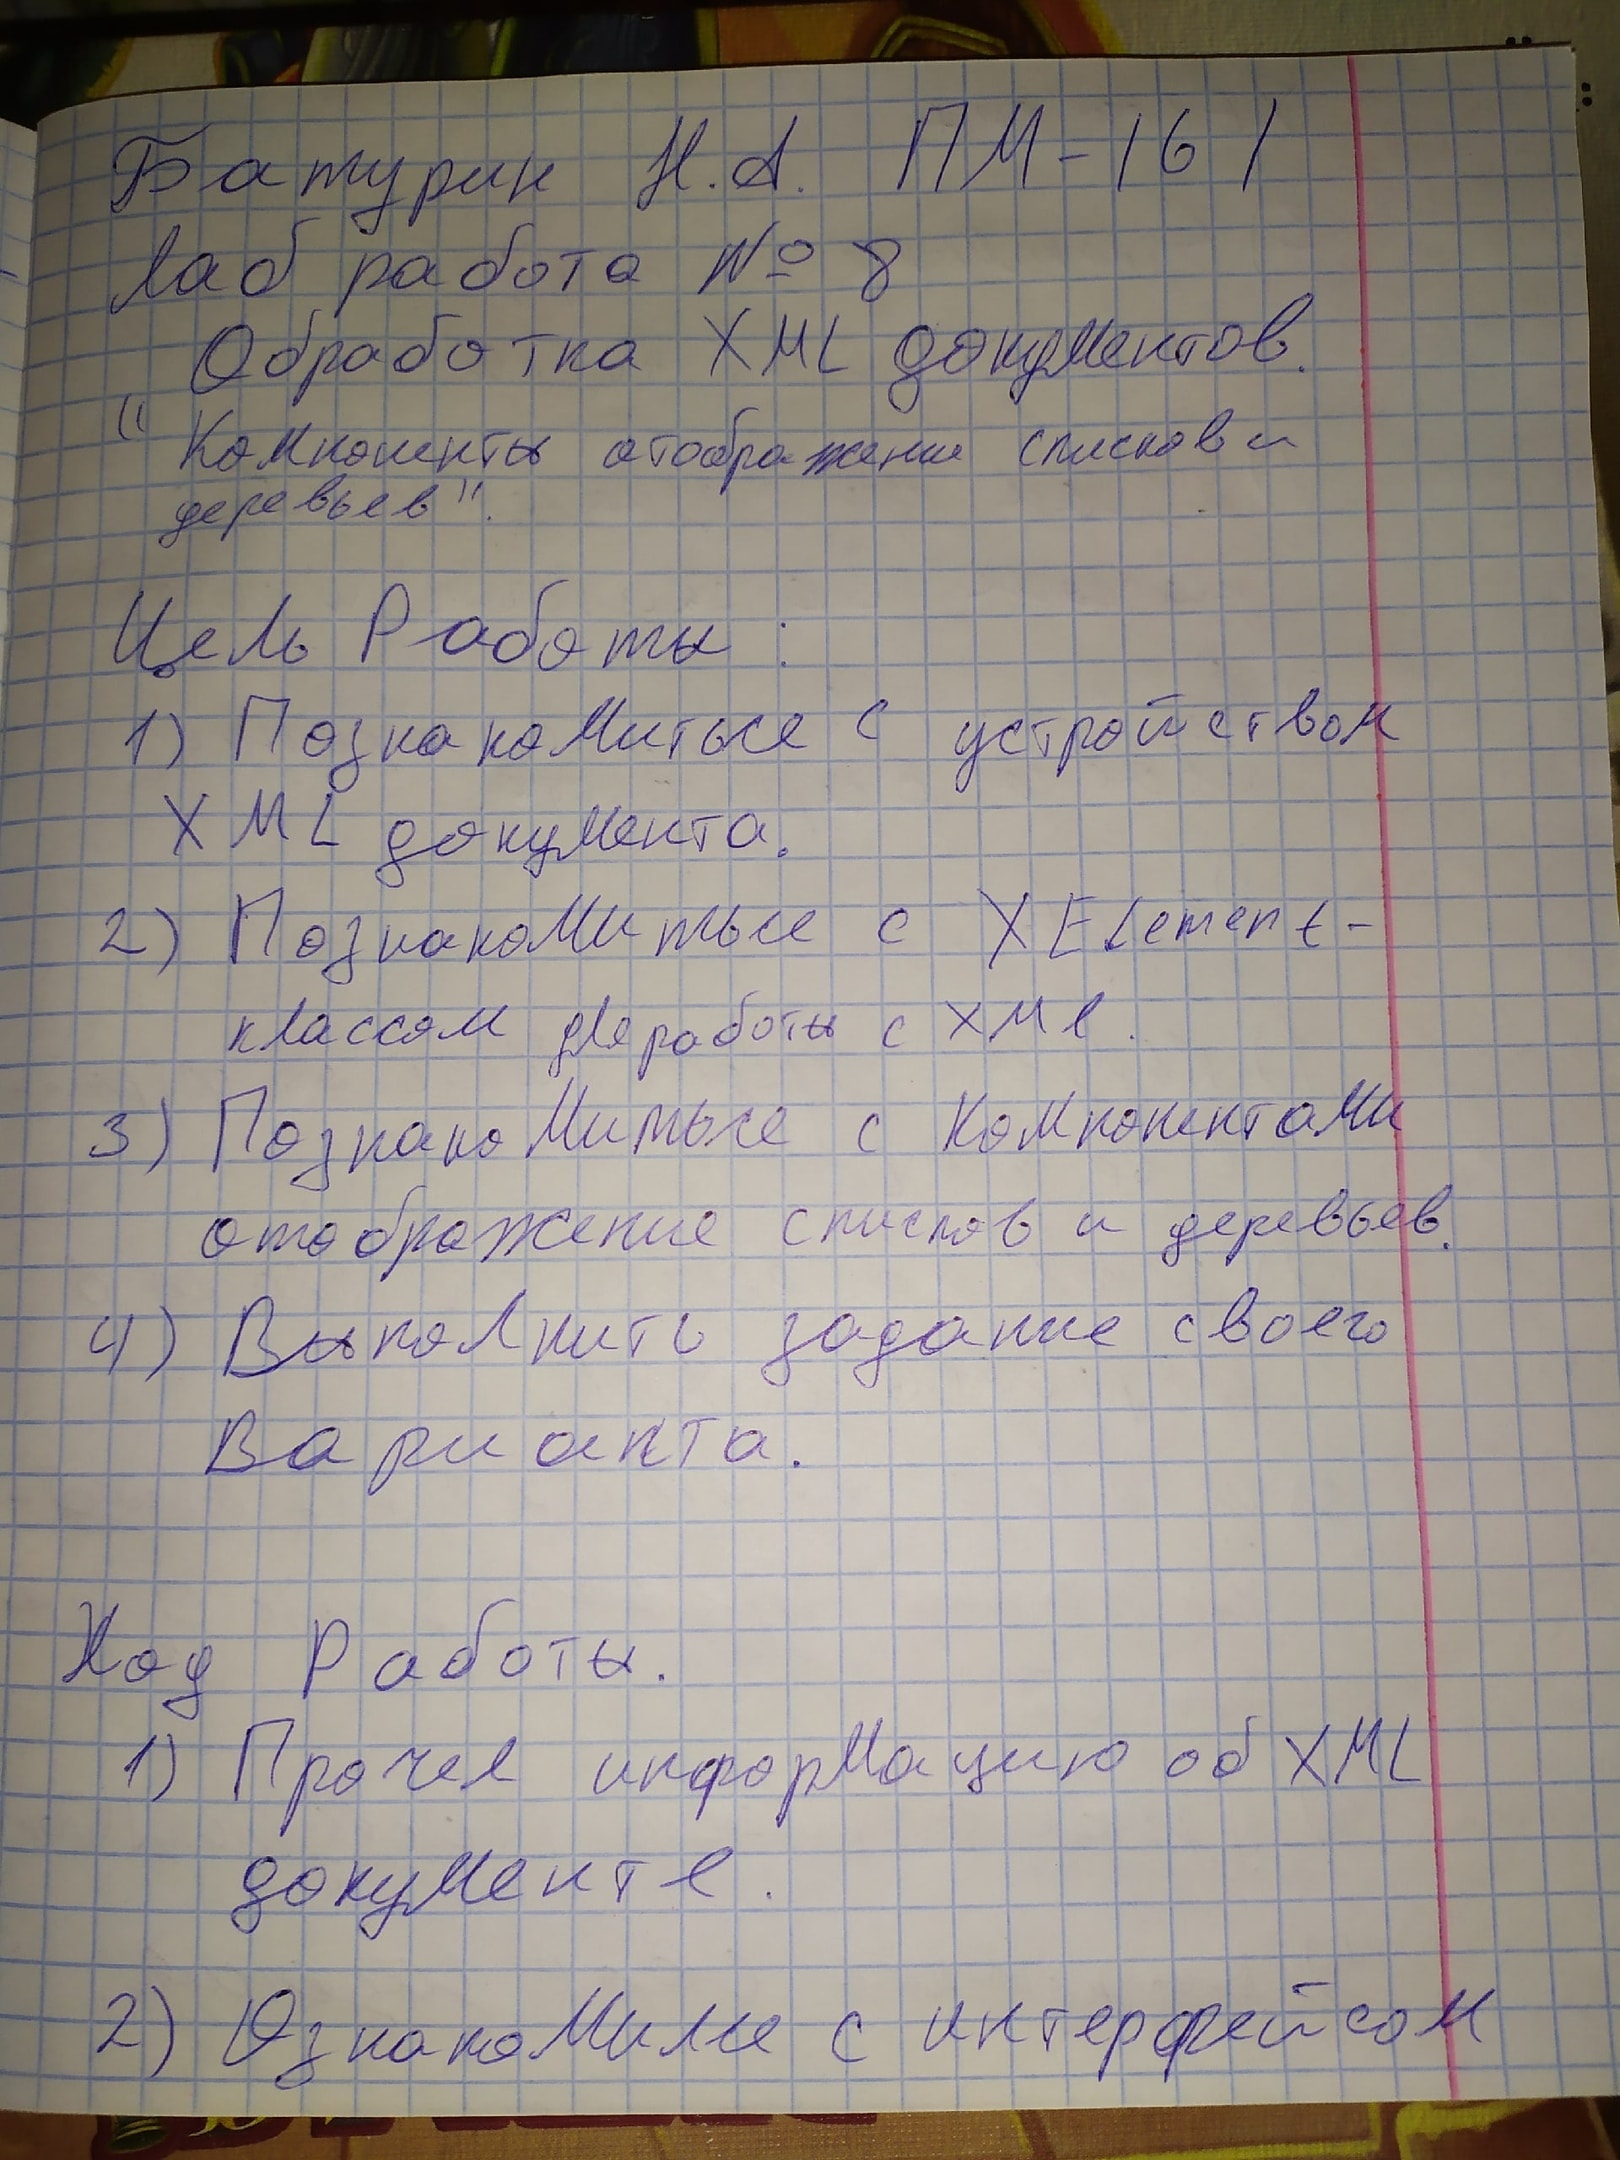 Батурин Н.А. ПМ-161
Лаб работа № 8
Обработка XML документов.
"Компоненты отображения списков и
деревьев".
Цель Работы:
1) Познакомиться с устройством
XML документа.
2) Познакомиться с XElement-
классом для работы с XML.
3) Познакомиться с компонентами
отображения списков и деревьев.
4) Выполнить задание своего
Варианта.
Ход Работы.
1) Прочел информацию об XML
документе.
2) Ознакомился с интерфейсом